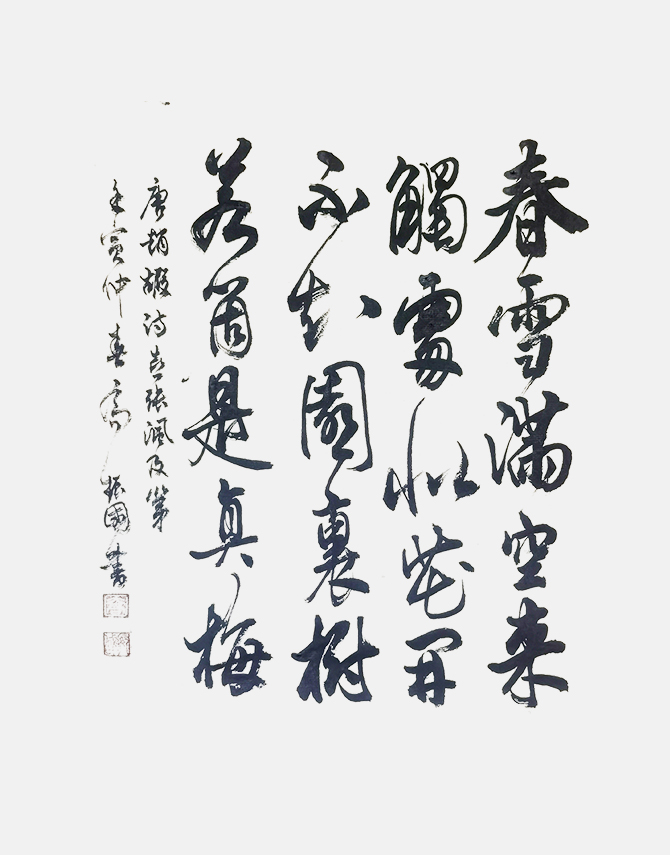 春雪滿空来
觸處似花開
不知園裏樹
若箇是真梅
唐趙嘏詩喜張渢及第
壬寅仲春高振國書